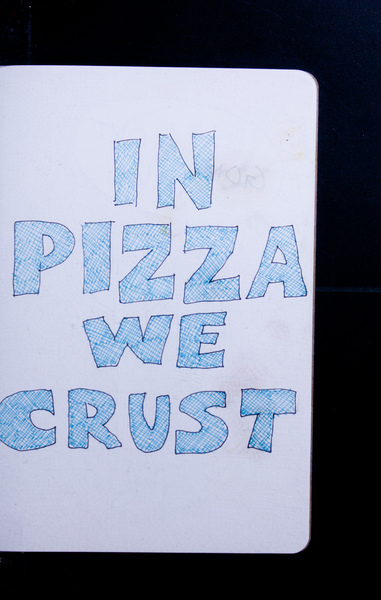 IN
PIZZA
WE
CRUST